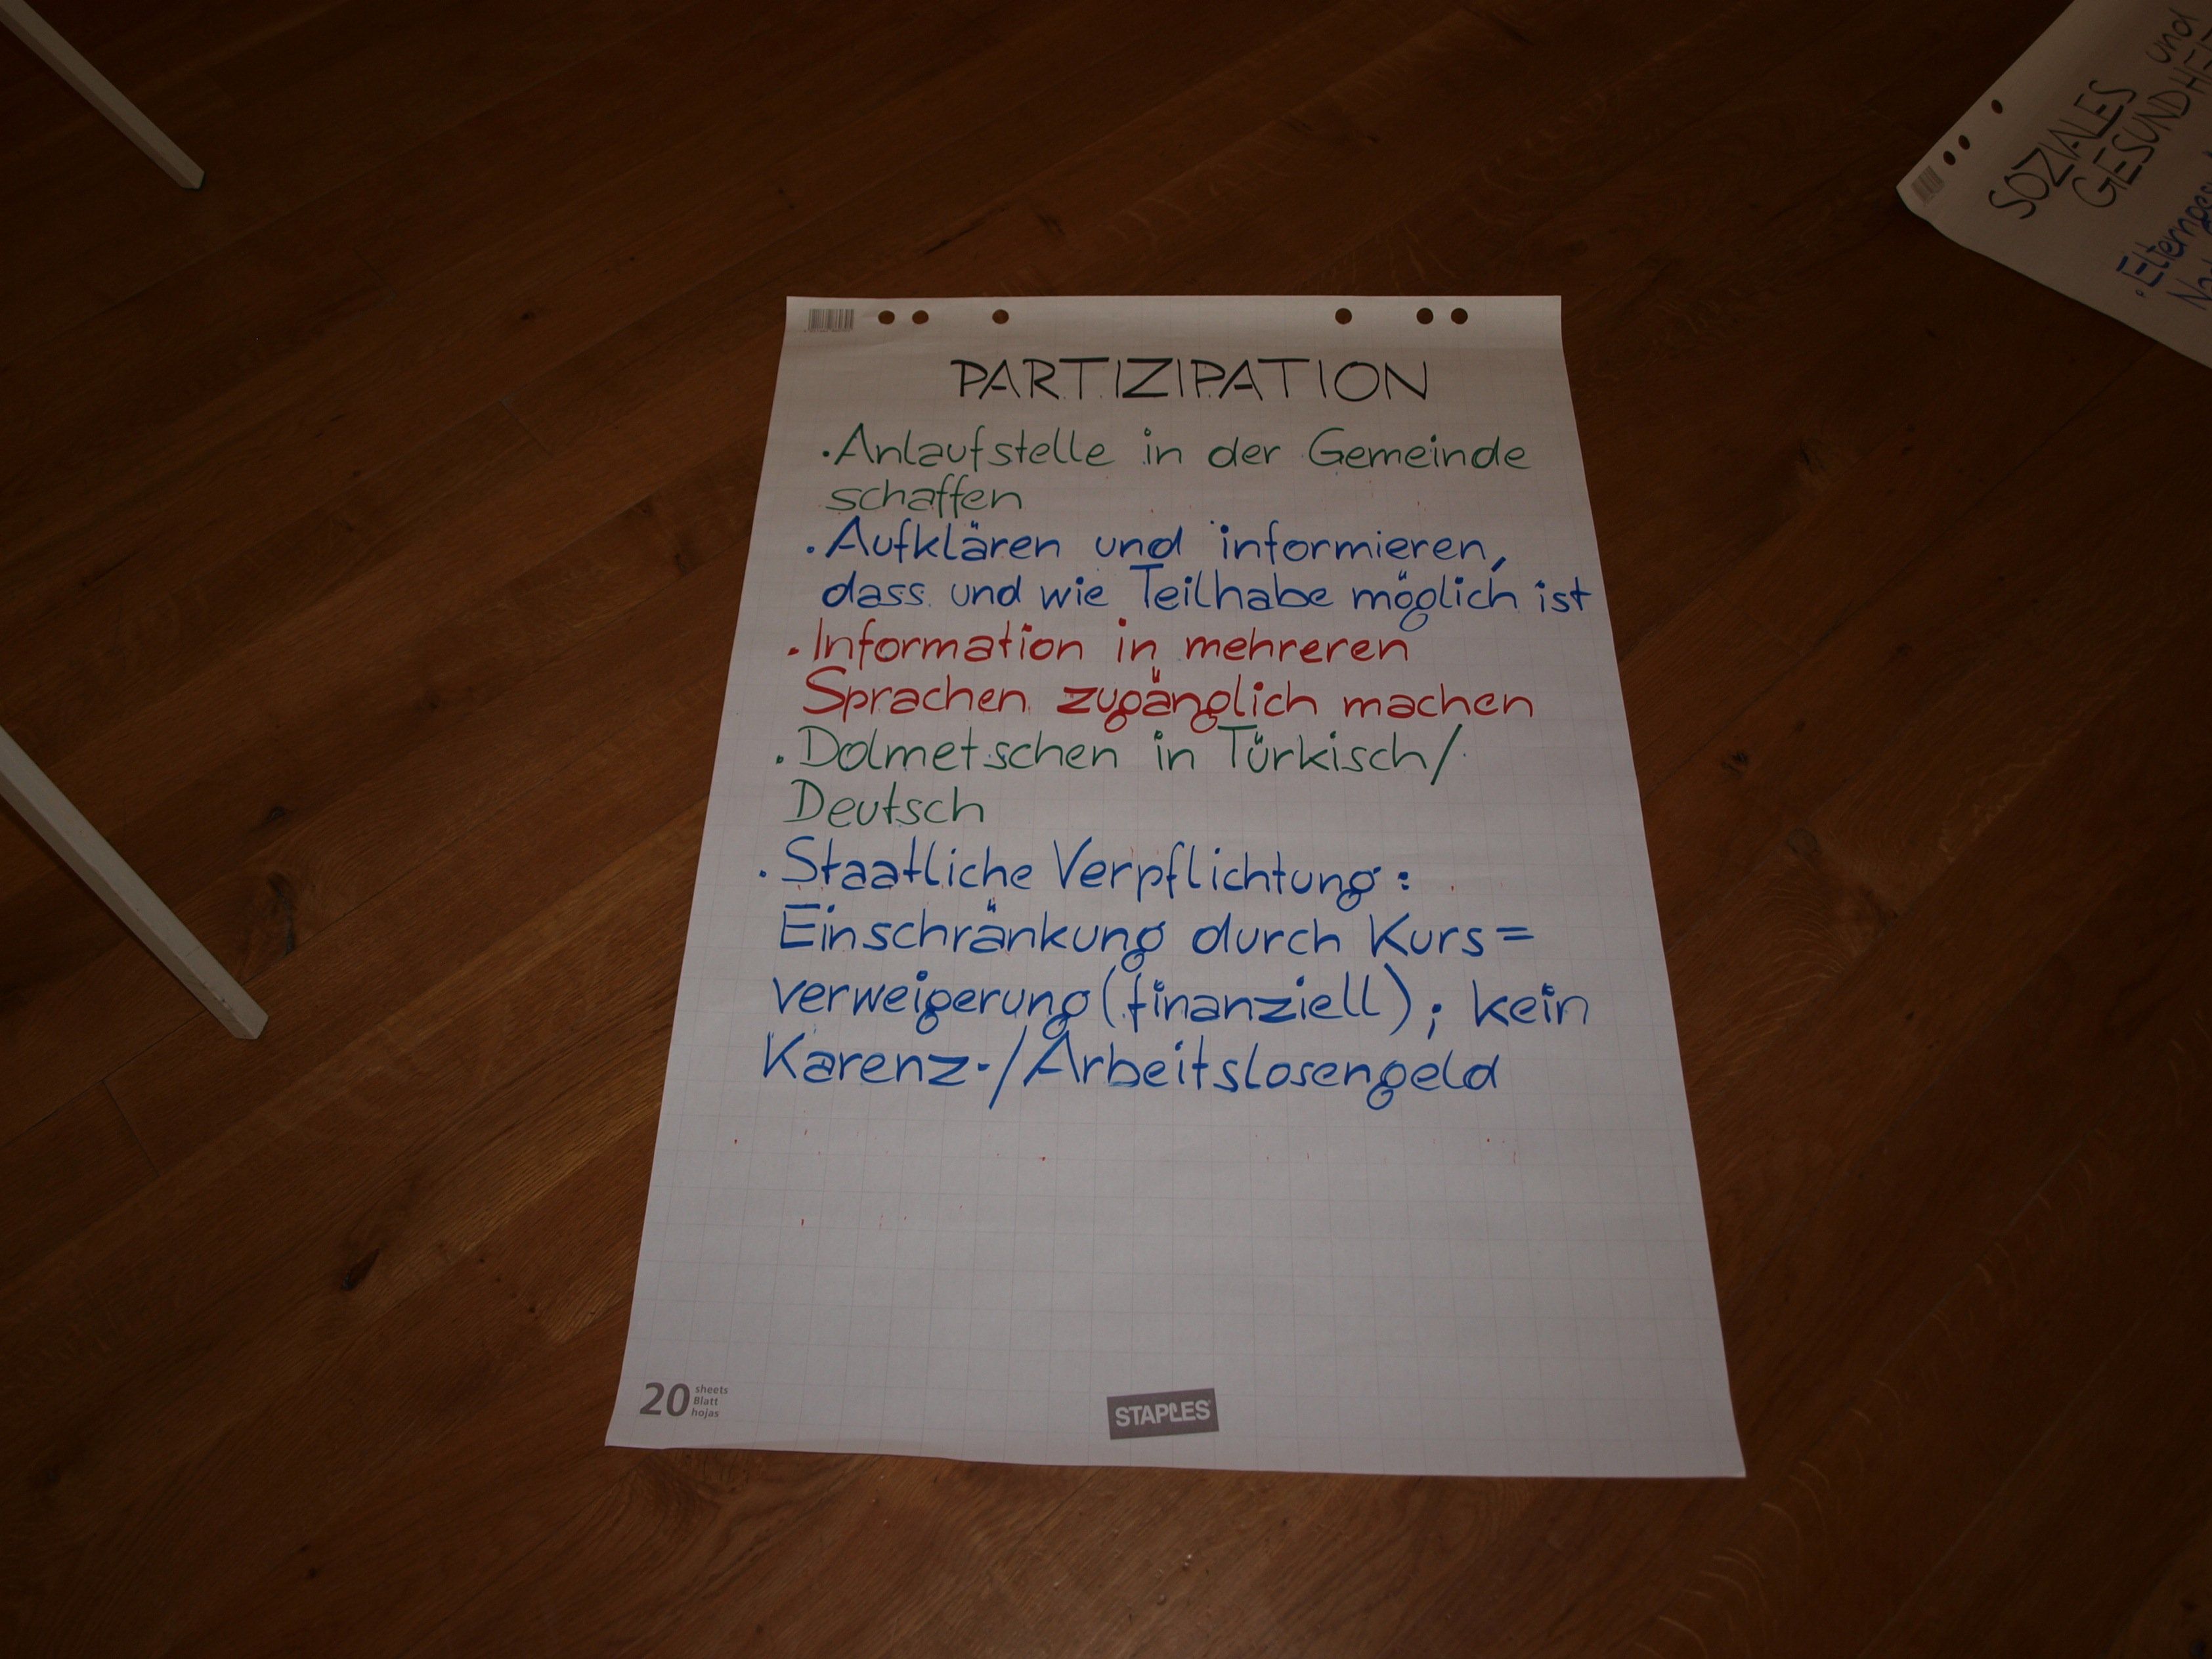 PARTIZIPATION
·Anlaufstelle in der Gemeinde
schaffen
·Aufklären und informieren,
dass und wie Teilhabe möglich ist
·Information in mehreren
Sprachen zugänglich machen
·Dolmetschen in Türkisch/
Deutsch
·Staatliche Verpflichtung:
Einschränkung durch Kurs=
verweigerung (finanziell); kein
Karenz-/Arbeitslosengeld
20 sheets
Blatt
hojas
STAPLES
SOZIALES und